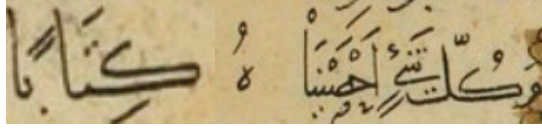 وَكُلَّ شَيْءٍ أَحْصَيْنَاهُ كِتَابًا